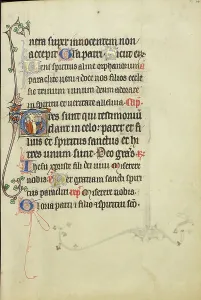 nera super innocentem non
accepit Gloria patri
spiritus alme orphanorum
paraclite veni et doce nos filios eccle
sie trinum et unum deum adorare
in spiritu et veritate alleluia
Tres sunt qui testimonium
dant in celo pater et fi
lius et spiritus sanctus et hi
tres unum sunt Deo gras
Ihesu xpriste fili dei vivi
miserere nobis Per gratiam sancti spiri
tus paracliti miserere nobis
Gloria patri et filio et spiritui sco